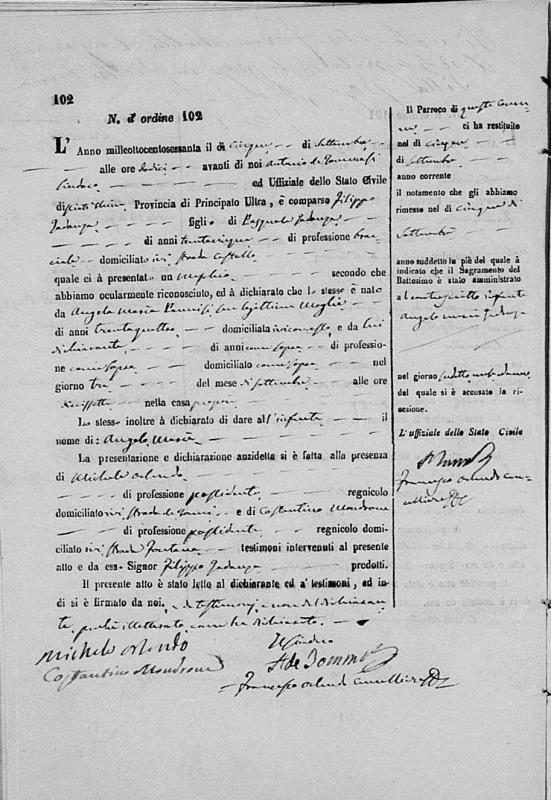 102
N. d' ordine 102
L' Anno milleottocentosessanta il dì cinque di Settembre
alle ore dodici avanti di noi Antonio de Tommasi
Sindaco ed Uffiziale dello Stato Civile
di Provincia di Principato Ultra, è comparso Filippo
figlio di Pasquale
di anni trentacinque di professione brac
ciale domiciliato ivi Strada Castello
quale ci à presentato un Maschio secondo che
abbiamo ocularmente riconosciuto, ed à dichiarato che lo stesso è nato
da Angela Maria sua legittima Moglie
di anni trentaquattro domiciliata ivi con esso, e da lui
dichiarante di anni come sopra di professio-
ne come sopra domiciliato come sopra nel
giorno tre del mese di Settembre alle ore
diciassette nella casa propria
Lo stesso inoltre à dichiarato di dare all' infante il
nome di: Angelo Maria
La presentazione e dichiarazione anzidetta si è fatta alla presenza
di Michele Orlando
di professione possidente regnicolo
domiciliato ivi Strada e di Costantino Mondrone
di professione possidente regnicolo domi-
ciliato ivi Strada Fontana testimoni intervenuti al presente
atto e da esso Signor Filippo prodotti.
Il presente atto è stato letto al dichiarante ed a' testimoni, ed in-
di si è firmato da noi, e da testimonj, e non dal dichiaran
te perché illetterato come ha dichiarato.
Michele Orlando
Costantino Mondrone
Il Sindaco
A de Tommasi
Francesco Orlando cancelliere
Il Parroco di questo Comu
ne ci ha restituito
nel dì cinque
di Settembre
anno corrente
il notamento che gli abbiamo
rimesso nel dì cinque di
Settembre
anno suddetto in piè del quale à
indicato che il Sagramento del
Battesimo è stato amministrato
a infante
Angelo Maria
nel giorno
del quale si è accusata la ri-
cezione.
L' uffiziale dello Stato Civile
Francesco Orlando can-
celliere